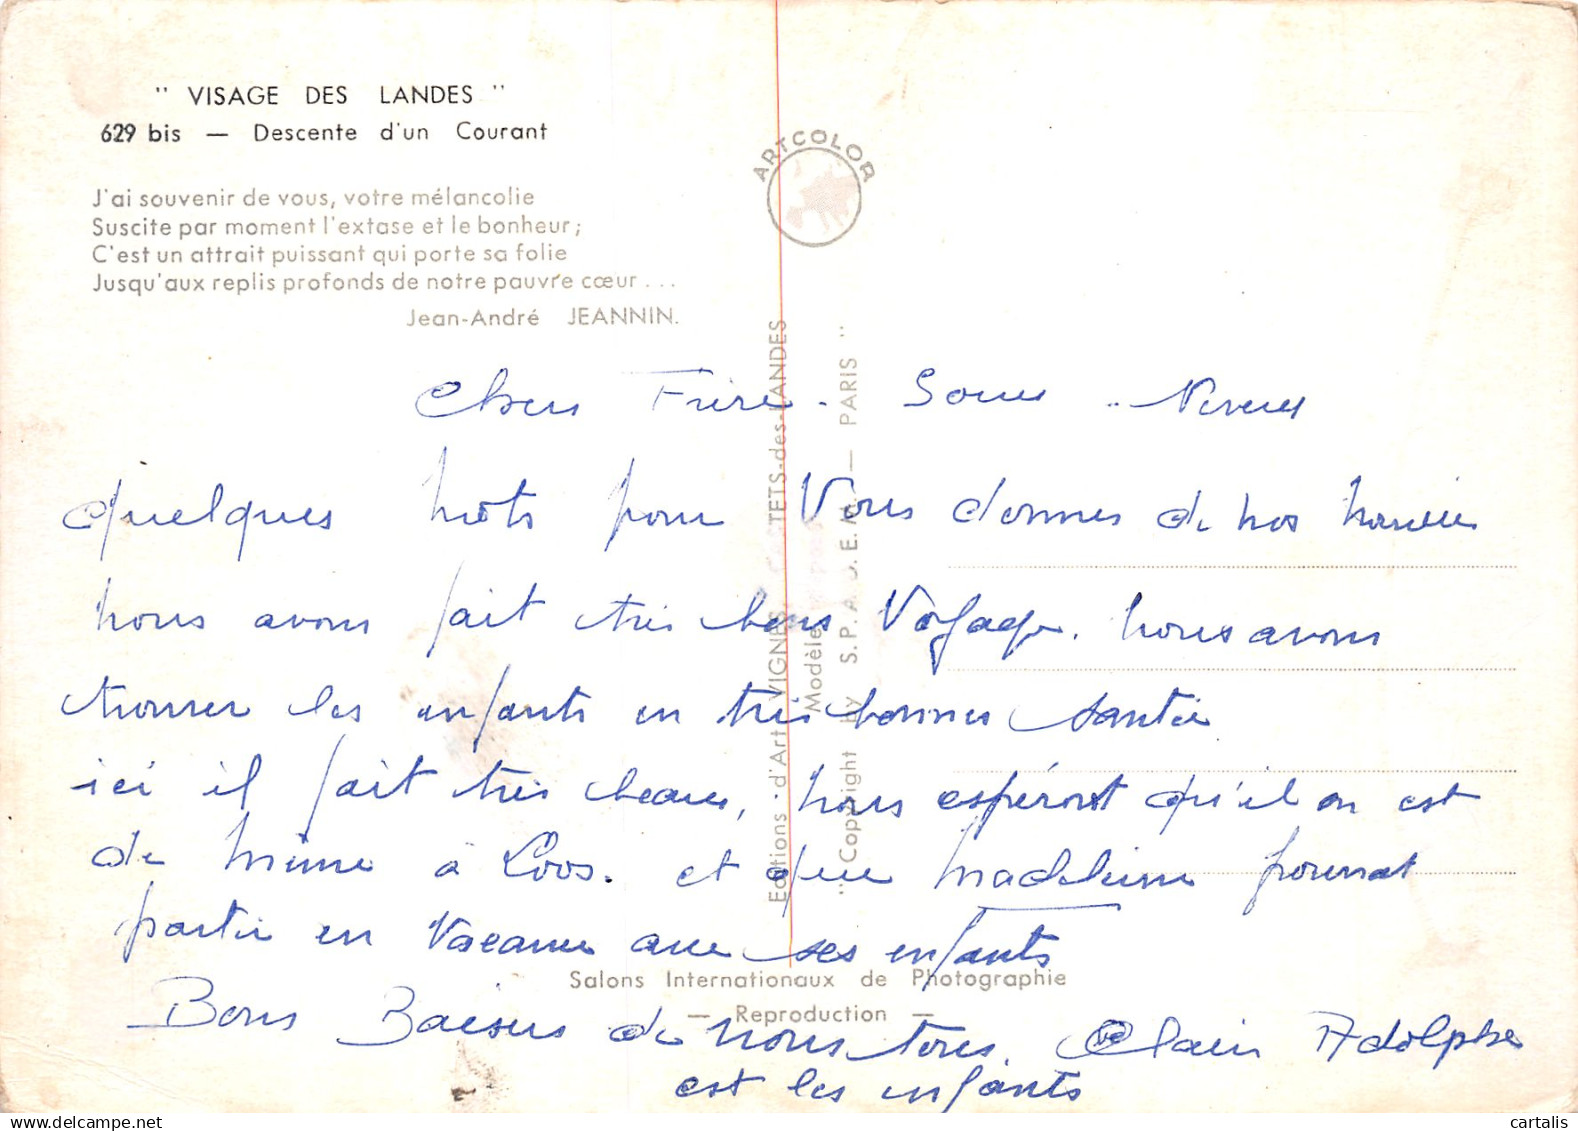 " VISAGE DES LANDES "
629 bis — Descente d'un Courant
J'ai souvenir de vous, votre mélancolie
Suscite par moment l'extase et le bonheur;
C'est un attrait puissant qui porte sa folie
Jusqu'aux replis profonds de notre pauvre cœur . . .
Jean-André JEANNIN.
ARTCOLOR
Chers Frère. Soeur .. Neveus
quelques mots pour Vous donnes de nos
nous avons fait très bons Voyage. nous avons
trouver les enfants en très bonnes santée
ici il fait très beaus, nous espéront qu'il en est
de même à Loos. et que Madeleine pourrat
partir en Vacance avec ses enfants
Bons Baisers de nous tous. Clair Adolphe
est les enfants
Editions d'Art VIGNES, CASTETS-des-LANDES
Modèle
" Copyright by S.P.A.D.E.M. — PARIS "
Salons Internationaux de Photographie
— Reproduction —
cartalis